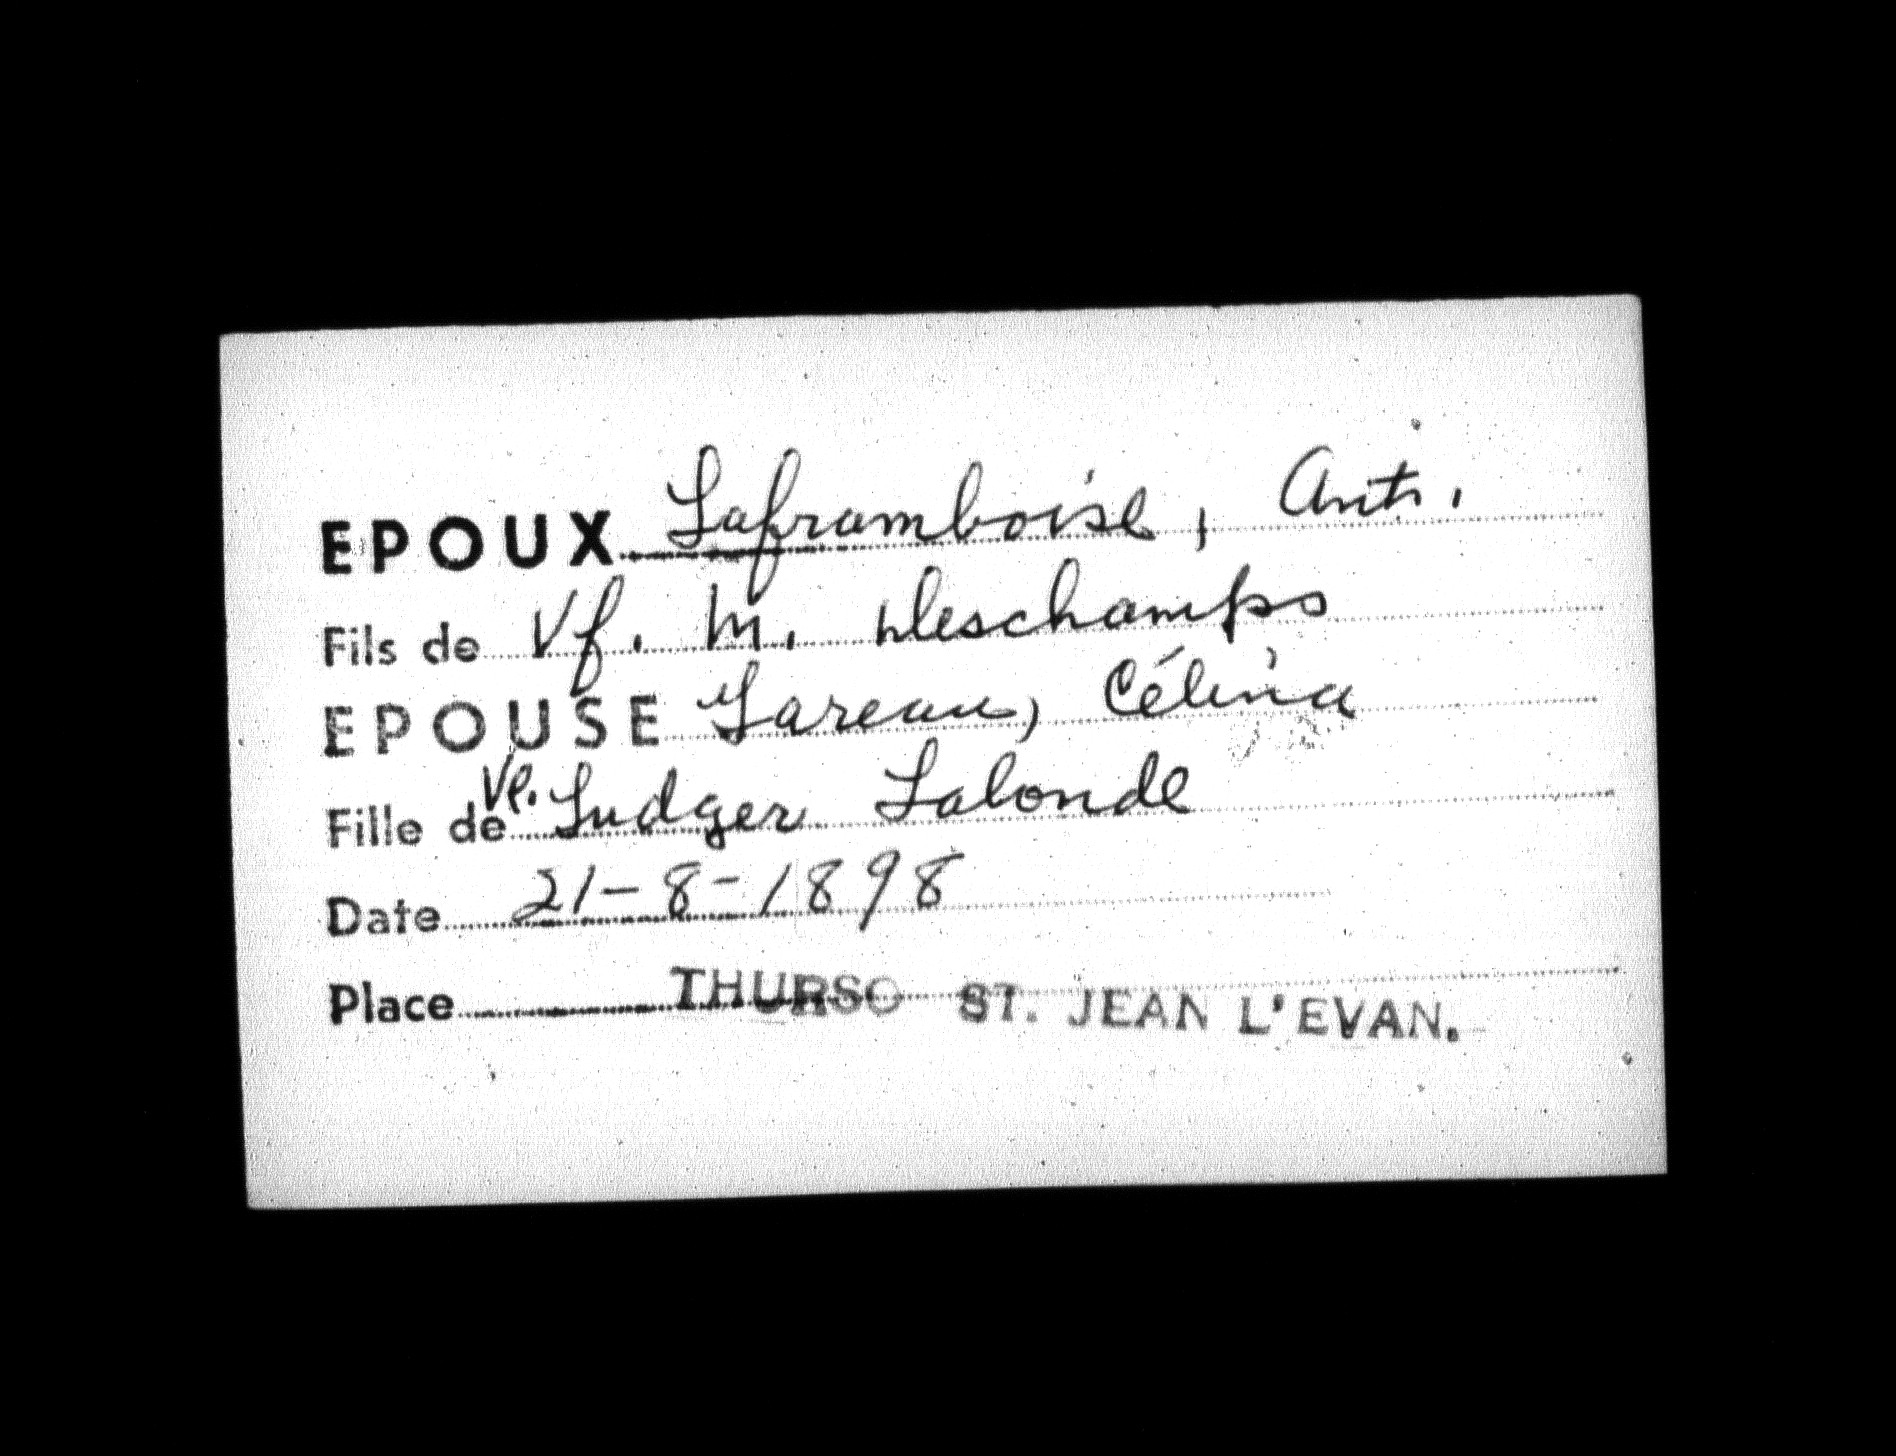 EPOUX Laframboise, Ant.
Fils de Vf. M. Deschamps
EPOUSE Gareau, Célina
Fille de Ve. Ludger Lalonde
Date 21-8-1898
Place THURSO ST. JEAN L'EVAN.